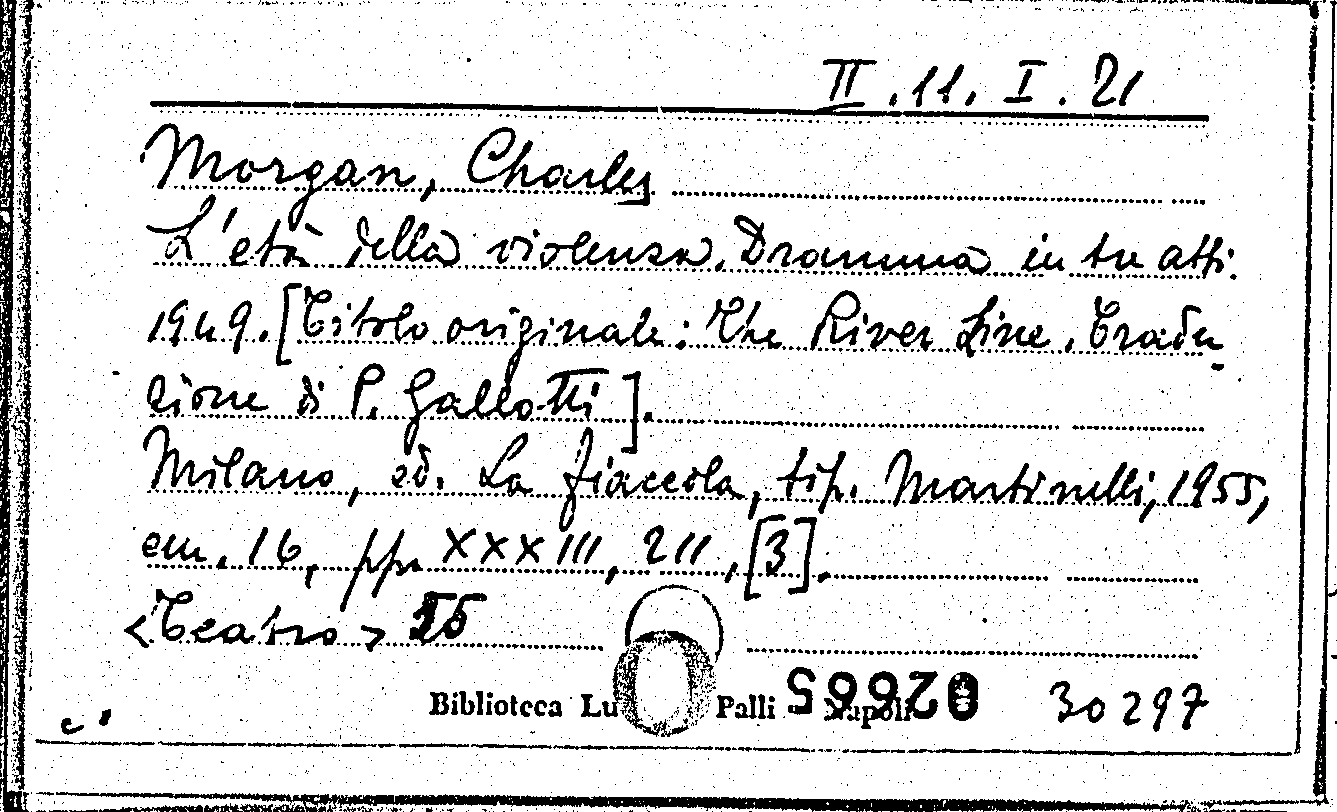 II.11.I.21
Morgan, Charles
L'età della violenza. Dramma in tre atti.
1949. [Titolo originale: The River Line. Tradu
zione di P. Gallotti].
Milano, ed. La fiaccola, tip. Martinelli, 1955,
cm. 16, pp. XXXIII, 211, [3].
<Teatro> 
Biblioteca Lu Palli Napoli 02665 30297